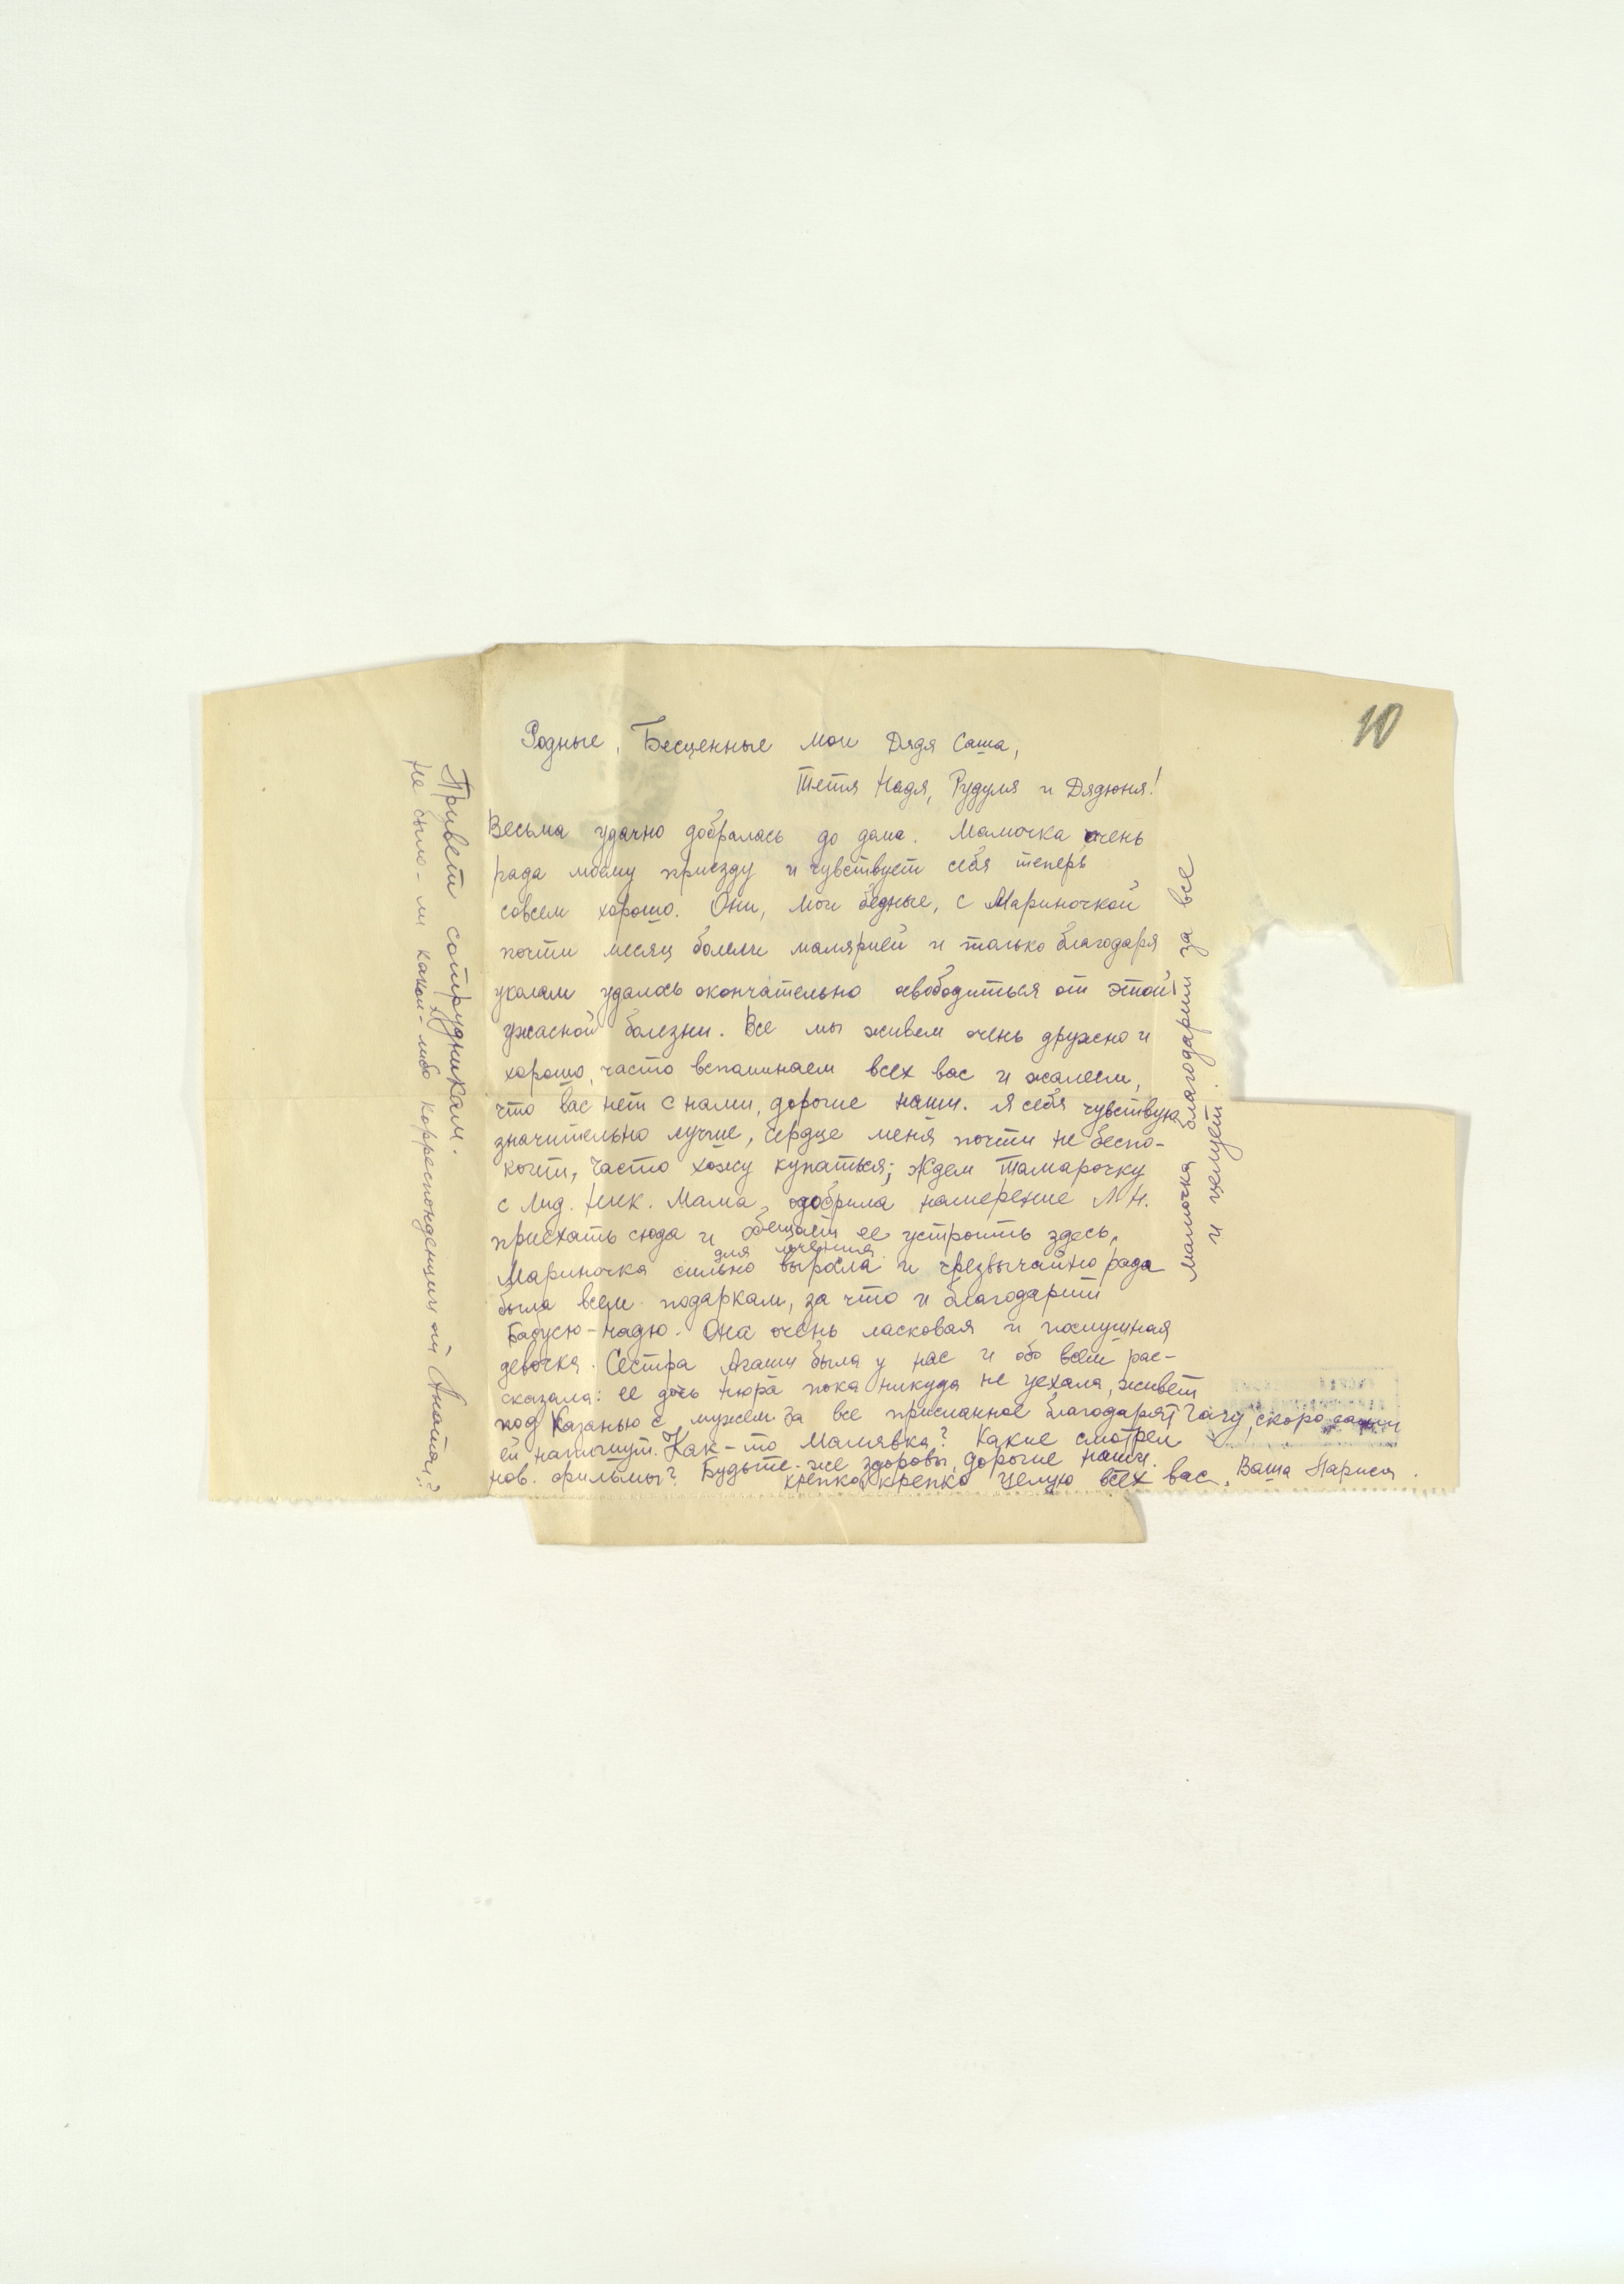 10
Родные, Бесценные мои Дядя Саша,
Тетя Надя, Рудуля и Дядюня!
Весьма удачно добралась до дома. Мамочка очень
рада моему приезду и чувствует себя теперь
совсем хорошо. Они, мои бедные, с Мариночкой
почти месяц болели малярией и только благодаря
уколам удалось окончательно освободиться от этой
ужасной болезни. Все мы живем очень дружно и
хорошо, часто вспоминаем всех вас и жалеем,
что вас нет с нами, дорогие наши. Я себя чувствую
значительно лучше, сердце меня почти не беспо-
коит, часто хожу купаться; Ждем Тамарочку
с Лид. Ник. Мама одобрила намерение Л.Н.
приехать сюда и обещает ее устроить здесь,
для лечения.
Мариночка сильно выросла и чрезвычайно рада
была всем подаркам, за что и благодарит
Бабусю-Надю. Она очень ласковая и послушная
девочка. Сестра Агаши была у нас и обо всем рас-
сказала: ее дочь Нюра пока никуда не уехала, живет
под Казанью с мужем. За все присланное благодарят Гашу, скоро сами
ей напишут. Как-то Малявка? Какие смотрели
нов. фильмы? Будьте-же здоровы, дорогие наши.
Крепко, крепко целую всех вас. Ваша Лариса.
Мамочка благодарит за все
и целует.
Привет сотрудникам.
Не было-ли какой-либо корреспонденции от Анатолия?